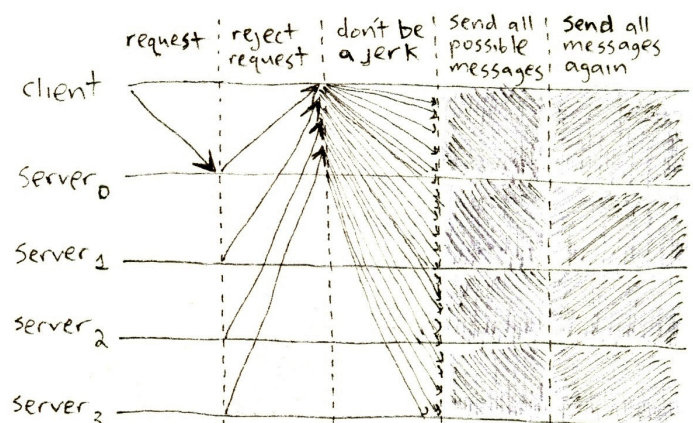 request
reject
request
don't be
a jerk
send all
possible
messages
send all
messages
again
client
server 0
server 1
server 2
server 3